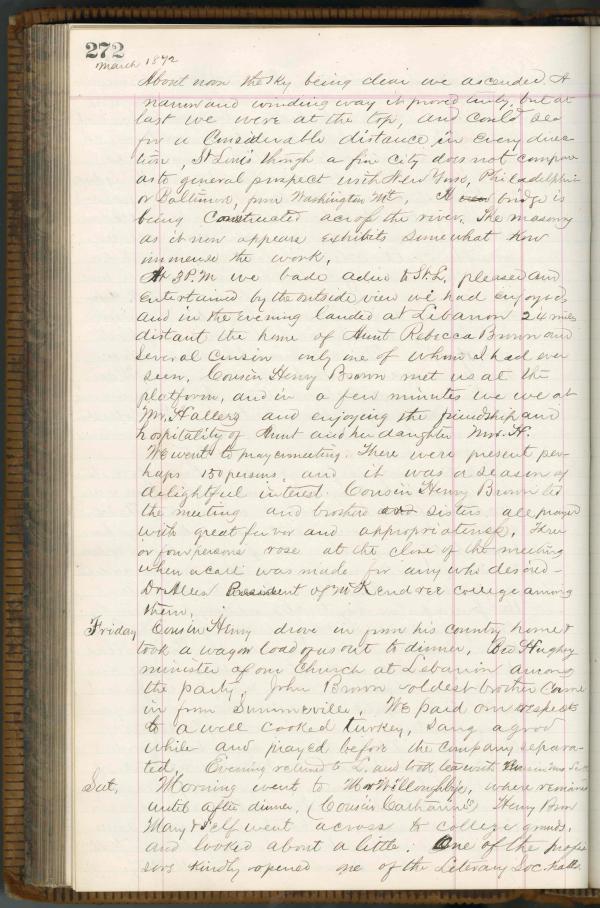 272
March 1872
About noon the sky being clear we ascended A
narrow and winding way it proved to be, but at
last we were at the top, and could see
for a Considerable distance in every direc
tion, St Louis though a fine City does not compare
as to general prospect with New York, Philadelphia
or Baltimore, from Washington Mt. A bridge is
being Constructed across the river. The masonry
as it now appears exhibits somewhat how
immense the work,
At 3 P.M we bade adieu to St L. pleased and
Entertained by the outside view we had enjoyed
and in the evening landed at Lebanon 24 miles
distant the home of Aunt Rebecca Brown and
several Cousin only one of whom I had ever
seen, Cousin Henry Brown met us at the
platform, and in a few minutes we we at
Mr. Hallers and enjoying the friendship and
hospitality of Aunt and her daughter Mrs. H.
We went to prayermeeting. There were present per
haps 150 persons, and it was a season of
delightful interest. Cousin Henry Brown led
the meeting and brothers and sisters all prayed
with great fervor and appropriateness, Three
or four persons rose at the close of the meeting
when a call was made for any who desired –
Dr Allen President of McKendree College among
them,
Friday Cousin Henry drove in from his country home &
took a wagon load of us out to dinner, Bro Hughey
minister of our Church at Lebanon among
the party. John Brown oldest brother Came
in from Summerville, We paid our respects
to a well cooked turkey, Sang a good
while and prayed before the company separa-
ted, Evening returned to L. and took tea with
Sat, Morning went to Mr Willoughbys, where remained
until after dinner, (Cousin Catharine's) Henry Brown
Mary & self went across to college grounds,
and looked about a little. One of the profes
sors kindly opened one of the Literary Soc. halls